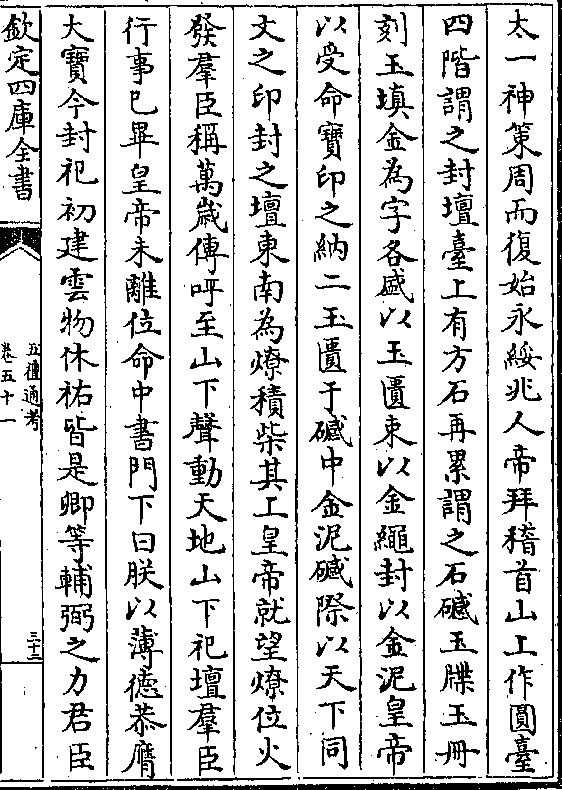 太一神策周而復始永綏兆人帝拜稽首山上作圓臺
四階謂之封壇臺上有方石再累謂之石䃭玉牒玉冊
刻玉填金為字各盛以玉匱束以金繩封以金泥皇帝
以受命寶印之納二玉匱于䃭中金泥䃭際以天下同
文之印封之壇東南為燎積柴其上皇帝就望燎位火
發羣臣稱萬歲傳呼至山下聲動天地山下祀壇羣臣
行事已畢皇帝未離位命中書門下曰朕以薄德恭膺
大寶今封祀初建雲物休祐皆是卿等輔弼之力君臣
欽定四庫全書
五禮通考
卷五十一
三十二